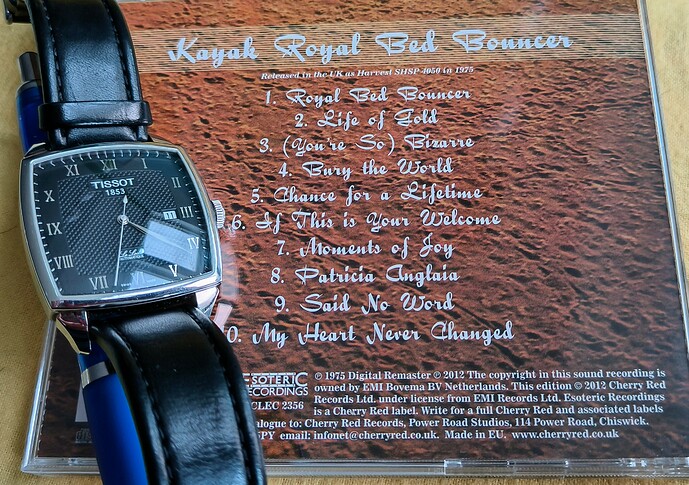 Kayak Royal Bed Bouncer
Released in the UK as Harvest SHSP 4050 in 1975
1. Royal Bed Bouncer
2. Life of Gold
3. (You're So) Bizarre
4. Bury the World
5. Chance for a Lifetime
6. If This is Your Welcome
7. Moments of Joy
8. Patricia Anglaia
9. Said No Word
0. My Heart Never Changed
ESOTERIC
RECORDINGS
CLEC 2356
℗ 1975 Digital Remaster ℗ 2012 The copyright in this sound recording is
owned by EMI Bovema BV Netherlands. This edition © 2012 Cherry Red
Records Ltd. under license from EMI Records Ltd. Esoteric Recordings
is a Cherry Red label. Write for a full Cherry Red and associated labels
alogue to: Cherry Red Records, Power Road Studios, 114 Power Road, Chiswick.
PY email: infonet@cherryred.co.uk. Made in EU. www.cherryred.co.uk
XI XII
II
III
IV
V
VII
VIII
IX
X
TISSOT
1853
11